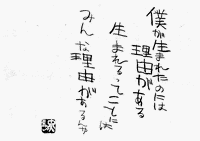 僕が生まれたのには
理由がある
生まれるってことには
みんな理由があるんだ